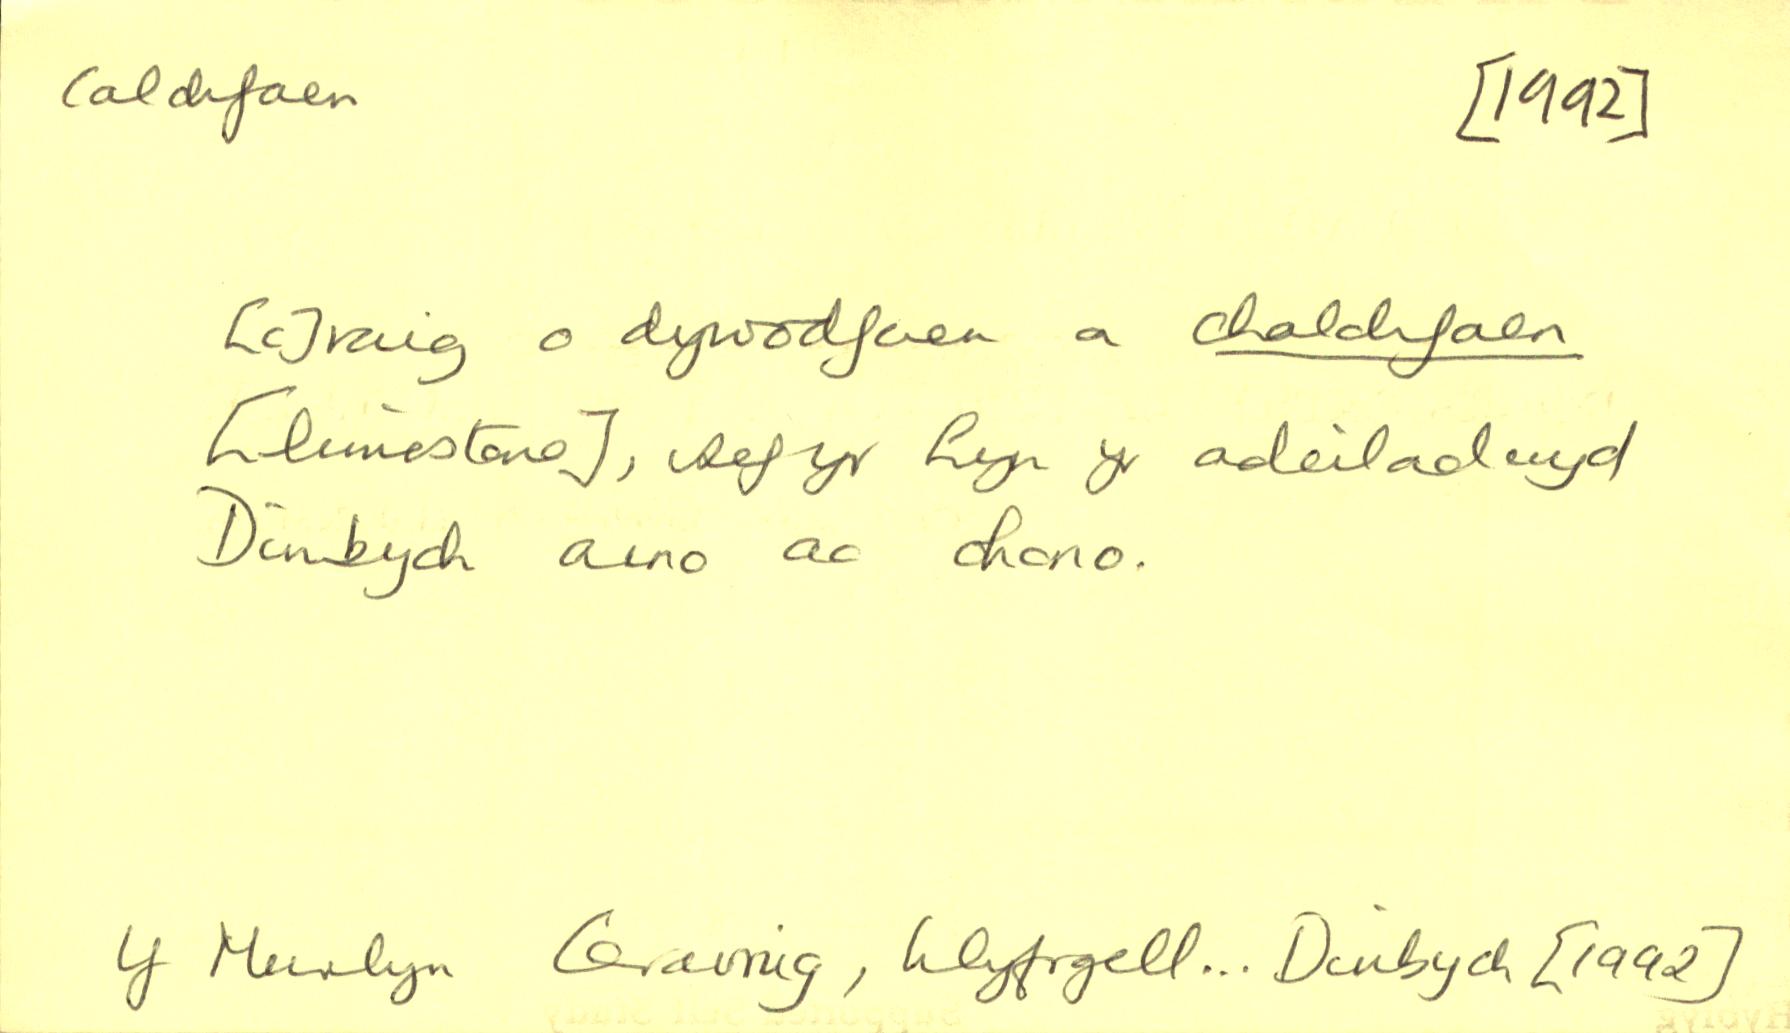 calchfaen [1992]
[c]raig o dywodfaen a chalchfaen
[limestone], sef yr hyn yr adeiladwyd
Dinbych arno ac ohono.
Y Murlyn Ceramig, Llyfrgell... Dinbych [1992]